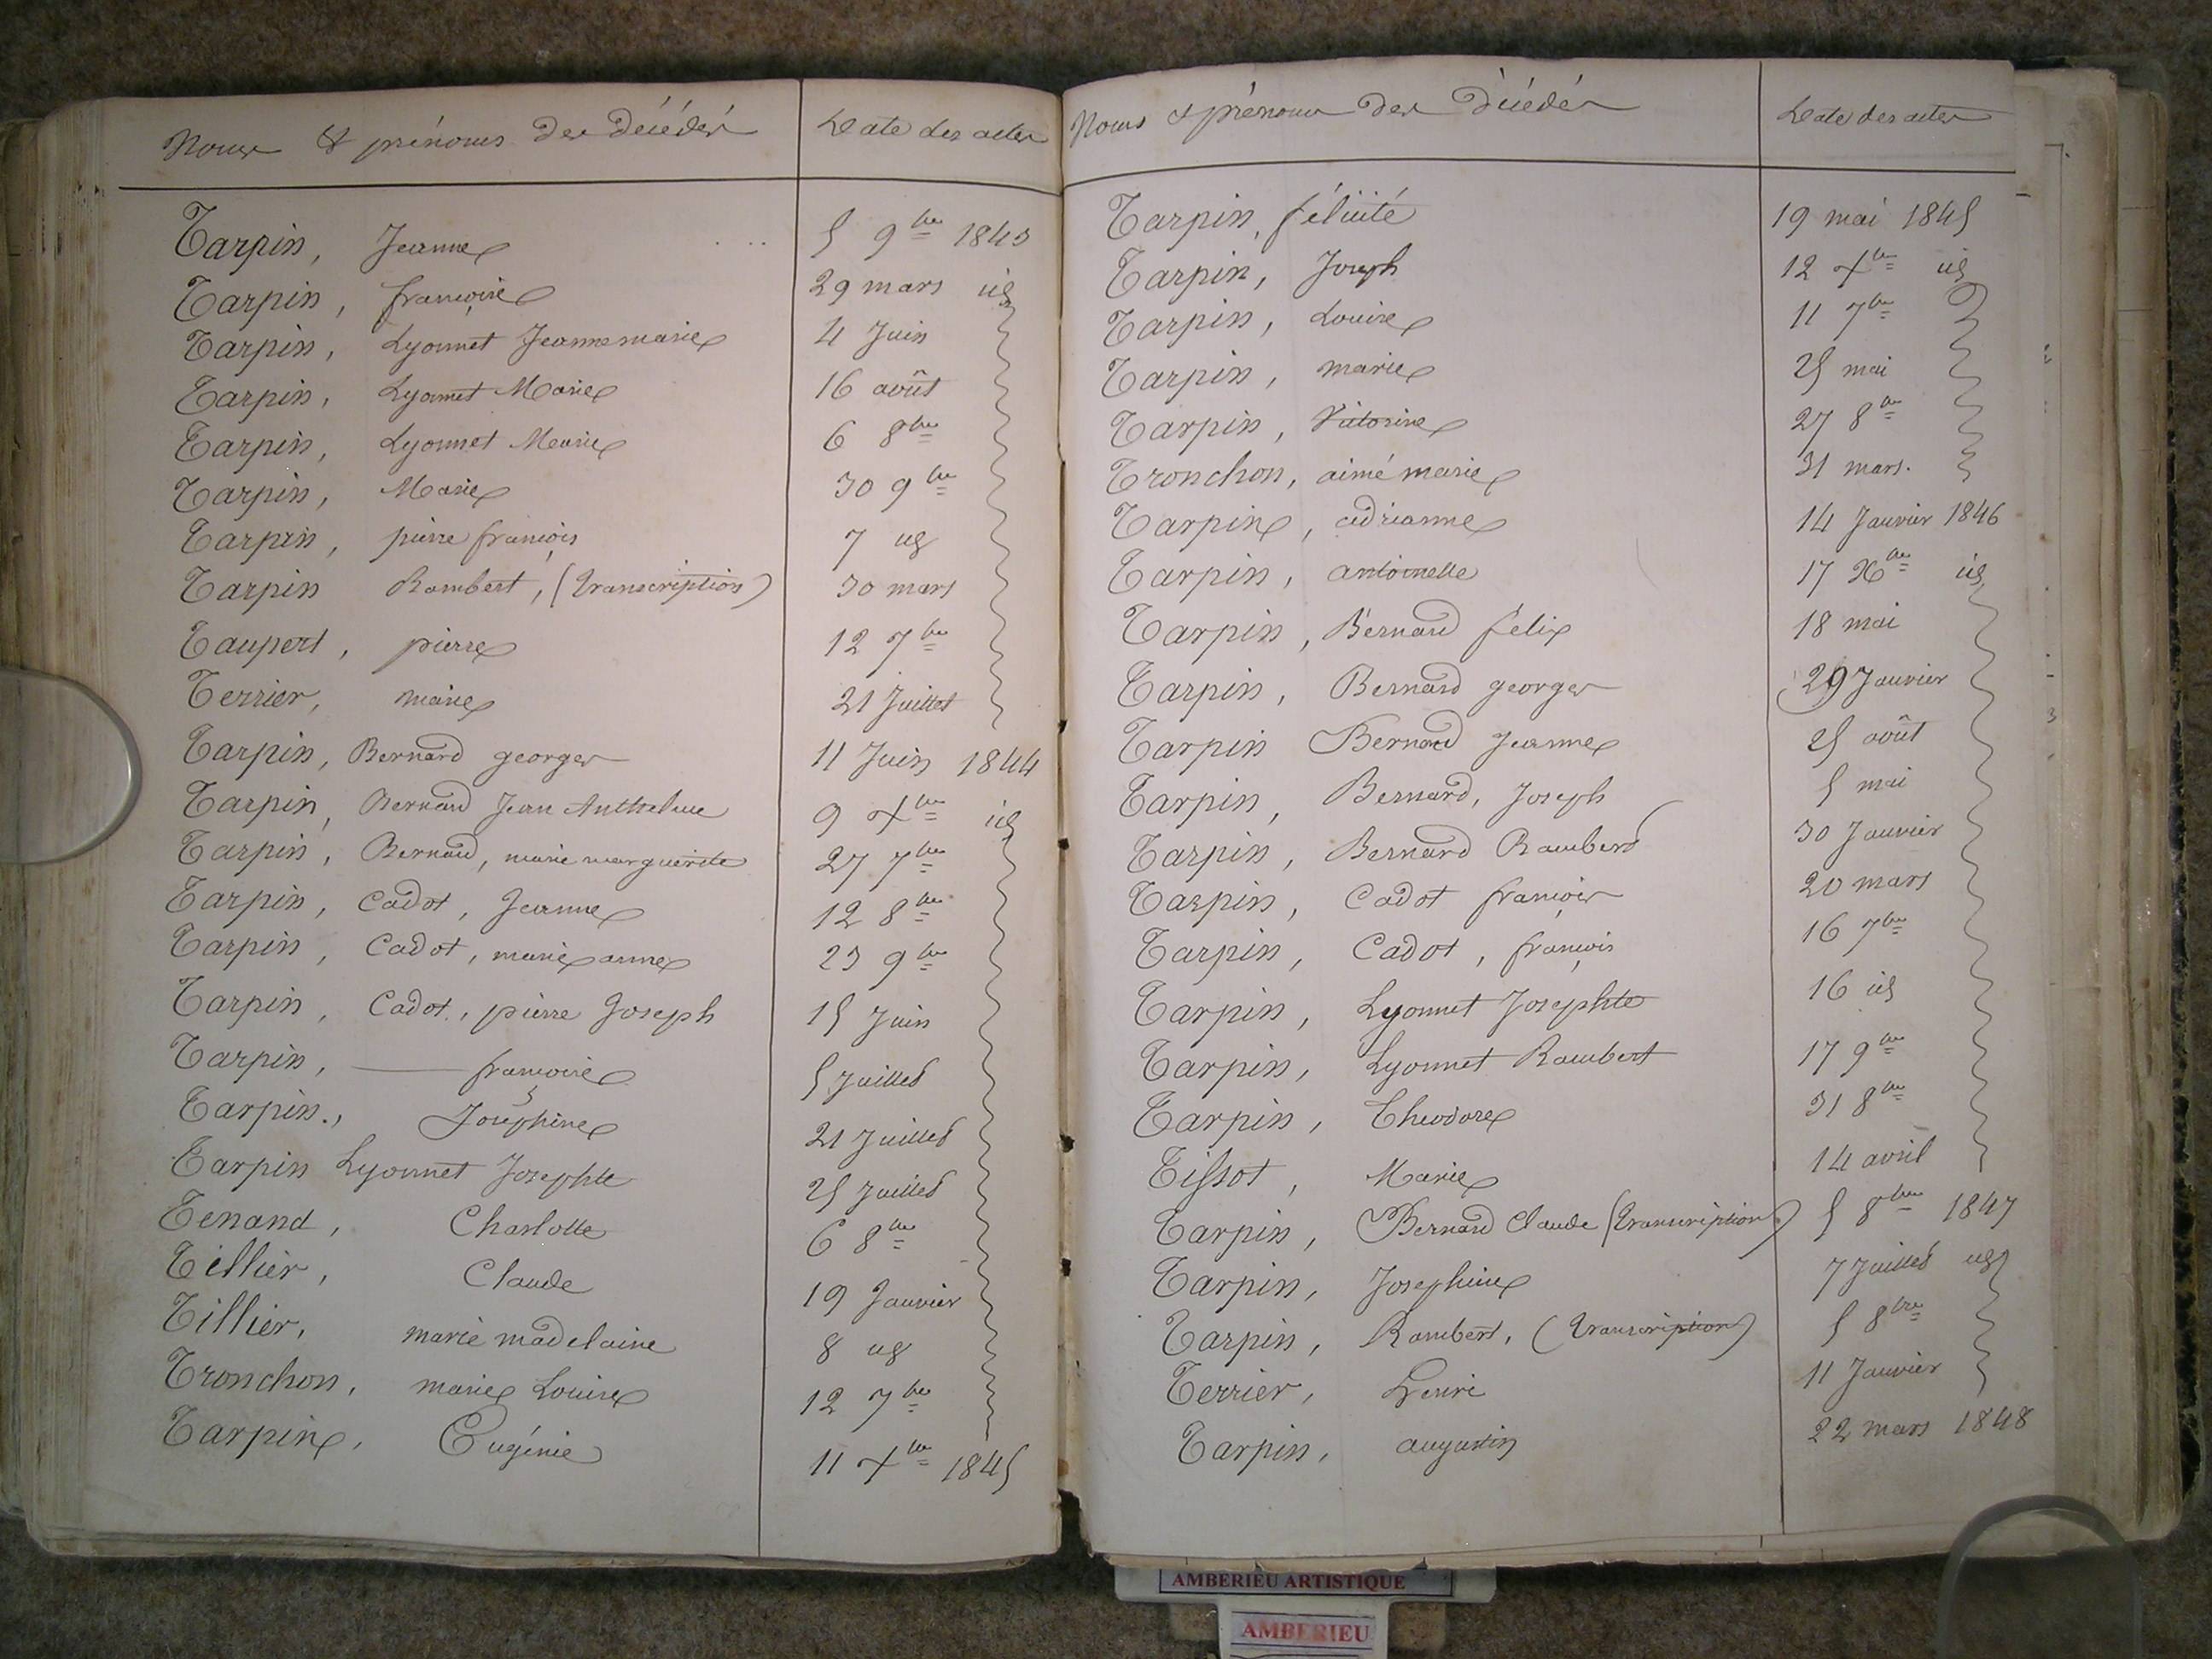 Noms & prénoms des Décédés Date des actes
Tarpin, Jeanne 5 9bre 1843
Tarpin, françoise 29 mars id
Tarpin, Lyonnet Jeanne marie 4 Juin
Tarpin, Lyonnet Marie 16 août
Tarpin, Lyonnet Marie 6 8bre
Tarpin, Marie 30 9bre
Tarpin, pierre françois 7 id
Tarpin Rambert, (transcription) 30 mars
Taupert, pierre 12 7bre
Terrier, marie 21 Juillet
Tarpin, Bernard georges 11 Juin 1844
Tarpin, Bernard Jean Anthelme 9 Xbre id
Tarpin, Bernard, marie marguerite 27 7bre
Tarpin, Cadot, Jeanne 12 8bre
Tarpin, Cadot, marie anne 23 9bre
Tarpin, Cadot, pierre Joseph 15 Juin
Tarpin, — françoise 5 Juillet
Tarpin., Joséphine 21 Juillet
Tarpin Lyonnet Josephte 25 Juillet
Tenand, Charlotte 6 8bre
Tillier, Claude 19 Janvier
Tillier, marie madelaine 8 id
Tronchon, marie Louise 12 7bre
Tarpin, Eugénie 11 Xbre 1845
Noms & prénoms des Décédés Date des actes
Tarpin, félicité 19 mai 1845
Tarpin, Joseph 12 Xbre id
Tarpin, Louise 11 7bre
Tarpin, marie 25 mai
Tarpin, Victorine 27 8bre
Tronchon, aimé marie 31 mars.
Tarpin, adrianne 14 Janvier 1846
Tarpin, antoinette 17 Xbre id
Tarpin, Bernard félix 18 mai
Tarpin, Bernard georges 29 Janvier
Tarpin Bernard Jeanne 25 août
Tarpin, Bernard, Joseph 5 mai
Tarpin, Bernard Rambert 30 Janvier
Tarpin, Cadot françois 20 mars
Tarpin, Cadot, françois 16 7bre
Tarpin, Lyonnet Josephte 16 id
Tarpin, Lyonnet Rambert 17 9bre
Tarpin, Theodore 31 8bre
Tissot, Marie 14 avril
Tarpin, Bernard Claude (transcription) 5 8bre 1847
Tarpin, Josephine 7 Juillet id
Tarpin, Rambert, (transcription) 5 8bre
Terrier, Henri 11 Janvier
Tarpin, augustin 22 mars 1848
AMBERIEU ARTISTIQUE
AMBERIEU